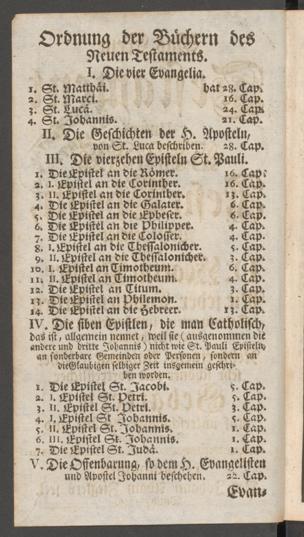 Ordnung der Büchern des
Neuen Testaments.
I. Die vier Evangelia.
1. St. Matthäi. hat 28. Cap.
2. St. Marci. 16. Cap.
3. St. Lucä. 24. Cap.
4. St. Johannis. 21. Cap.
II. Die Geschichten der H. Aposteln,
von St. Luca beschriben. 28. Cap.
III. Die vierzehen Episteln St. Pauli.
1. Die Epistel an die Römer. 16. Cap.
2. I. Epistel an die Corinther. 16. Cap.
3. II. Epistel an die Corinther. 13. Cap.
4. Die Epistel an die Galater. 6. Cap.
5. Die Epistel an die Epheser. 6. Cap.
6. Die Epistel an die Philipper. 4. Cap.
7. Die Epistel an die Colosser. 4. Cap.
8. I. Epistel an die Thessalonicher. 5. Cap.
9. II. Epistel an die Thessalonicher. 3. Cap.
10. I. Epistel an Timotheum. 6. Cap.
11. II. Epistel an Timotheum. 4. Cap.
12. Die Epistel an Titum. 3. Cap.
13. Die Epistel an Philemon. 1. Cap.
14. Die Epistel an die Hebreer. 13. Cap.
IV. Die siben Epistlen, die man Catholisch,
das ist, allgemein nennet, weil sie (ausgenommen die
andere und dritte Johannis) nicht wie St. Pauli Episteln,
an sonderbare Gemeinden oder Personen, sondern an
die Glaubigen selbiger Zeit insgemein geschri-
ben worden.
1. Die Epistel St. Jacobi. 5. Cap.
2. I. Epistel St. Petri. 5. Cap.
3. II. Epistel St. Petri. 3. Cap.
4. I. Epistel St Johannis. 5. Cap.
5. II. Epistel St. Johannis. 1. Cap.
6. III. Epistel St. Johannis. 1. Cap.
7. Die Epistel St. Judä. 1. Cap.
V. Die Offenbarung, so dem H. Evangelisten
und Apostel Johanni beschehen. 22. Cap.
Evan-